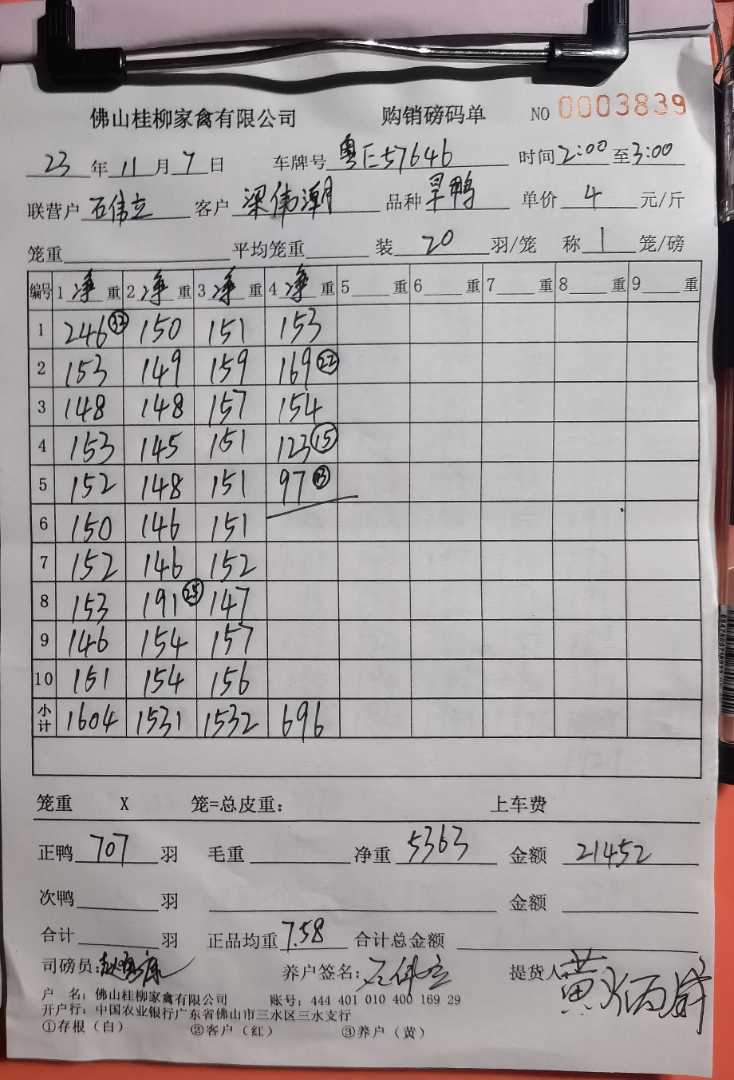 佛山桂柳家禽有限公司 购销磅码单 NO 0003839
23 年 11 月 7 日 车牌号 粤E57646 时间 2:00 至 3:00
联营户 石伟立 客户 梁伟潮 品种 旱鸭 单价 4 元/斤
笼重 平均笼重 装 20 羽/笼 称 1 笼/磅
编号 1 净 重 2 净 重 3 净 重 4 净 重 5 重 6 重 7 重 8 重 9 重
1 246 150 151 153
2 153 149 159 169 22
3 148 148 157 154
4 153 145 151 123 15
5 152 148 151 97
6 150 146 151
7 152 146 152
8 153 191 25 147
9 146 154 157
10 151 154 156
小计 1604 1531 1532 696
笼重 X 笼=总皮重： 上车费
正鸭 707 羽 毛重 净重 5363 金额 21452
次鸭 羽 金额
合计 羽 正品均重 7.58 合计总金额
司磅员： 养户签名： 石伟立 提货人 黄
户 名：佛山桂柳家禽有限公司 账号：444 401 010 400 169 29
开户行：中国农业银行广东省佛山市三水区三水支行
①存根（白） ②客户（红） ③养户（黄）